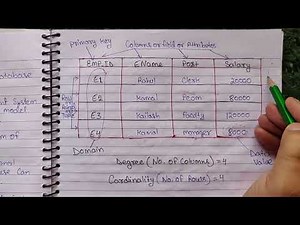 primary key
Columns or field or Attributes
EMP_ID EName Post Salary
E1 Rahul Clerk 20000
E2 Kamal Peon 80000
E3 Kailash Faculty 120000
E4 Kamal manager 8000
Domain
Degree (No. of Columns) = 4
Cardinality (No. of Rows) = 4
Value
atabase
System
model
m of
Can